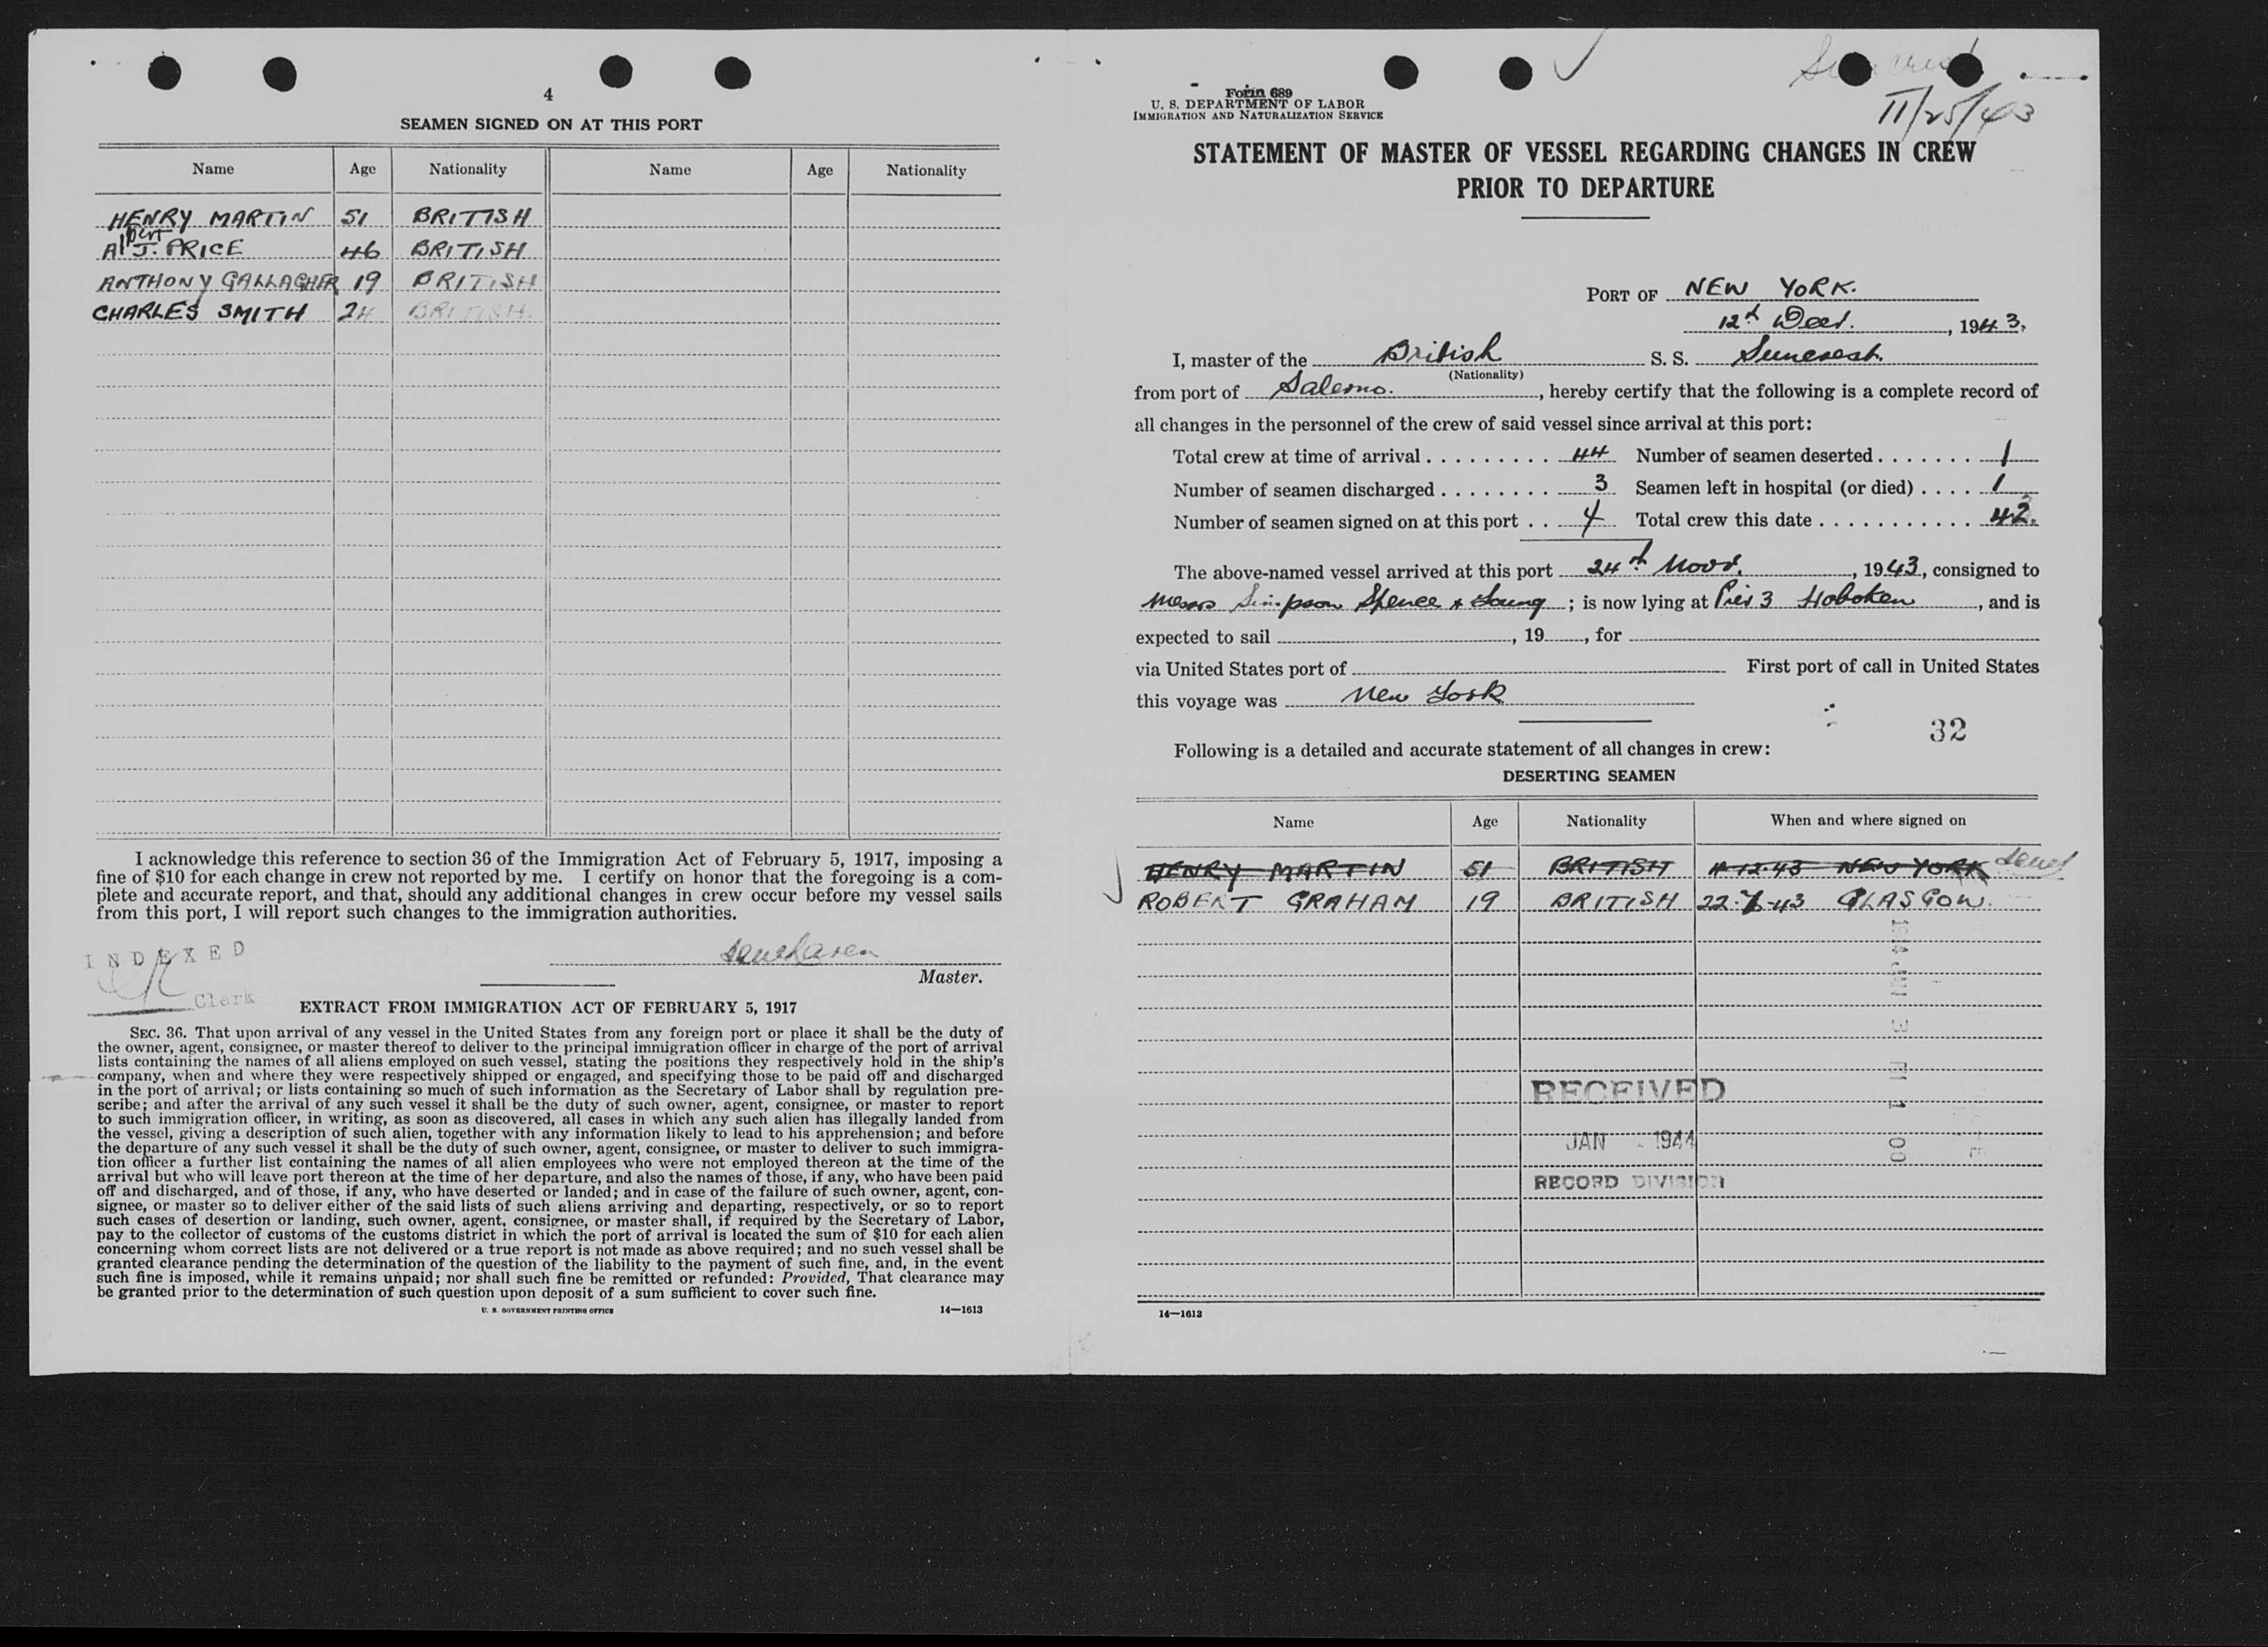 4
SEAMEN SIGNED ON AT THIS PORT
Name Age Nationality Name Age Nationality
HENRY MARTIN 51 BRITISH
Albert J. PRICE 46 BRITISH
ANTHONY GALLAGHER 19 BRITISH
CHARLES SMITH 24 BRITISH
I acknowledge this reference to section 36 of the Immigration Act of February 5, 1917, imposing a
fine of $10 for each change in crew not reported by me. I certify on honor that the foregoing is a com-
plete and accurate report, and that, should any additional changes in crew occur before my vessel sails
from this port, I will report such changes to the immigration authorities.
INDEXED
Master.
Clerk
EXTRACT FROM IMMIGRATION ACT OF FEBRUARY 5, 1917
SEC. 36. That upon arrival of any vessel in the United States from any foreign port or place it shall be the duty of
the owner, agent, consignee, or master thereof to deliver to the principal immigration officer in charge of the port of arrival
lists containing the names of all aliens employed on such vessel, stating the positions they respectively hold in the ship's
company, when and where they were respectively shipped or engaged, and specifying those to be paid off and discharged
in the port of arrival; or lists containing so much of such information as the Secretary of Labor shall by regulation pre-
scribe; and after the arrival of any such vessel it shall be the duty of such owner, agent, consignee, or master to report
to such immigration officer, in writing, as soon as discovered, all cases in which any such alien has illegally landed from
the vessel, giving a description of such alien, together with any information likely to lead to his apprehension; and before
the departure of any such vessel it shall be the duty of such owner, agent, consignee, or master to deliver to such immigra-
tion officer a further list containing the names of all alien employees who were not employed thereon at the time of the
arrival but who will leave port thereon at the time of her departure, and also the names of those, if any, who have been paid
off and discharged, and of those, if any, who have deserted or landed; and in case of the failure of such owner, agent, con-
signee, or master so to deliver either of the said lists of such aliens arriving and departing, respectively, or so to report
such cases of desertion or landing, such owner, agent, consignee, or master shall, if required by the Secretary of Labor,
pay to the collector of customs of the customs district in which the port of arrival is located the sum of $10 for each alien
concerning whom correct lists are not delivered or a true report is not made as above required; and no such vessel shall be
granted clearance pending the determination of the question of the liability to the payment of such fine, and, in the event
such fine is imposed, while it remains unpaid; nor shall such fine be remitted or refunded: Provided, That clearance may
be granted prior to the determination of such question upon deposit of a sum sufficient to cover such fine.
U. S. GOVERNMENT PRINTING OFFICE 14—1613
Form 689
U. S. DEPARTMENT OF LABOR
IMMIGRATION AND NATURALIZATION SERVICE
11/25/43
STATEMENT OF MASTER OF VESSEL REGARDING CHANGES IN CREW
PRIOR TO DEPARTURE
PORT OF NEW YORK.
12th Decr. , 1943.
I, master of the British S. S. Suncrest.
(Nationality)
from port of Salerno. , hereby certify that the following is a complete record of
all changes in the personnel of the crew of said vessel since arrival at this port:
Total crew at time of arrival . . . . . . . . . . 44 Number of seamen deserted . . . . . . . 1
Number of seamen discharged . . . . . . . . 3 Seamen left in hospital (or died) . . . . 1
Number of seamen signed on at this port . . 4 Total crew this date . . . . . . . . . . . 42.
The above-named vessel arrived at this port 24th Novr. , 1943, consigned to
Messrs Simpson Spence & Young ; is now lying at Pier 3 Hoboken , and is
expected to sail , 19 , for
via United States port of First port of call in United States
this voyage was New York
32
Following is a detailed and accurate statement of all changes in crew:
DESERTING SEAMEN
Name Age Nationality When and where signed on
HENRY MARTIN 51 BRITISH 11-12-43 NEW YORK
ROBERT GRAHAM 19 BRITISH 22-7-43 GLASGOW.
1944 JAN 3 PM 1 00
RECEIVED
JAN 1944
RECORD DIVISION
14—1613